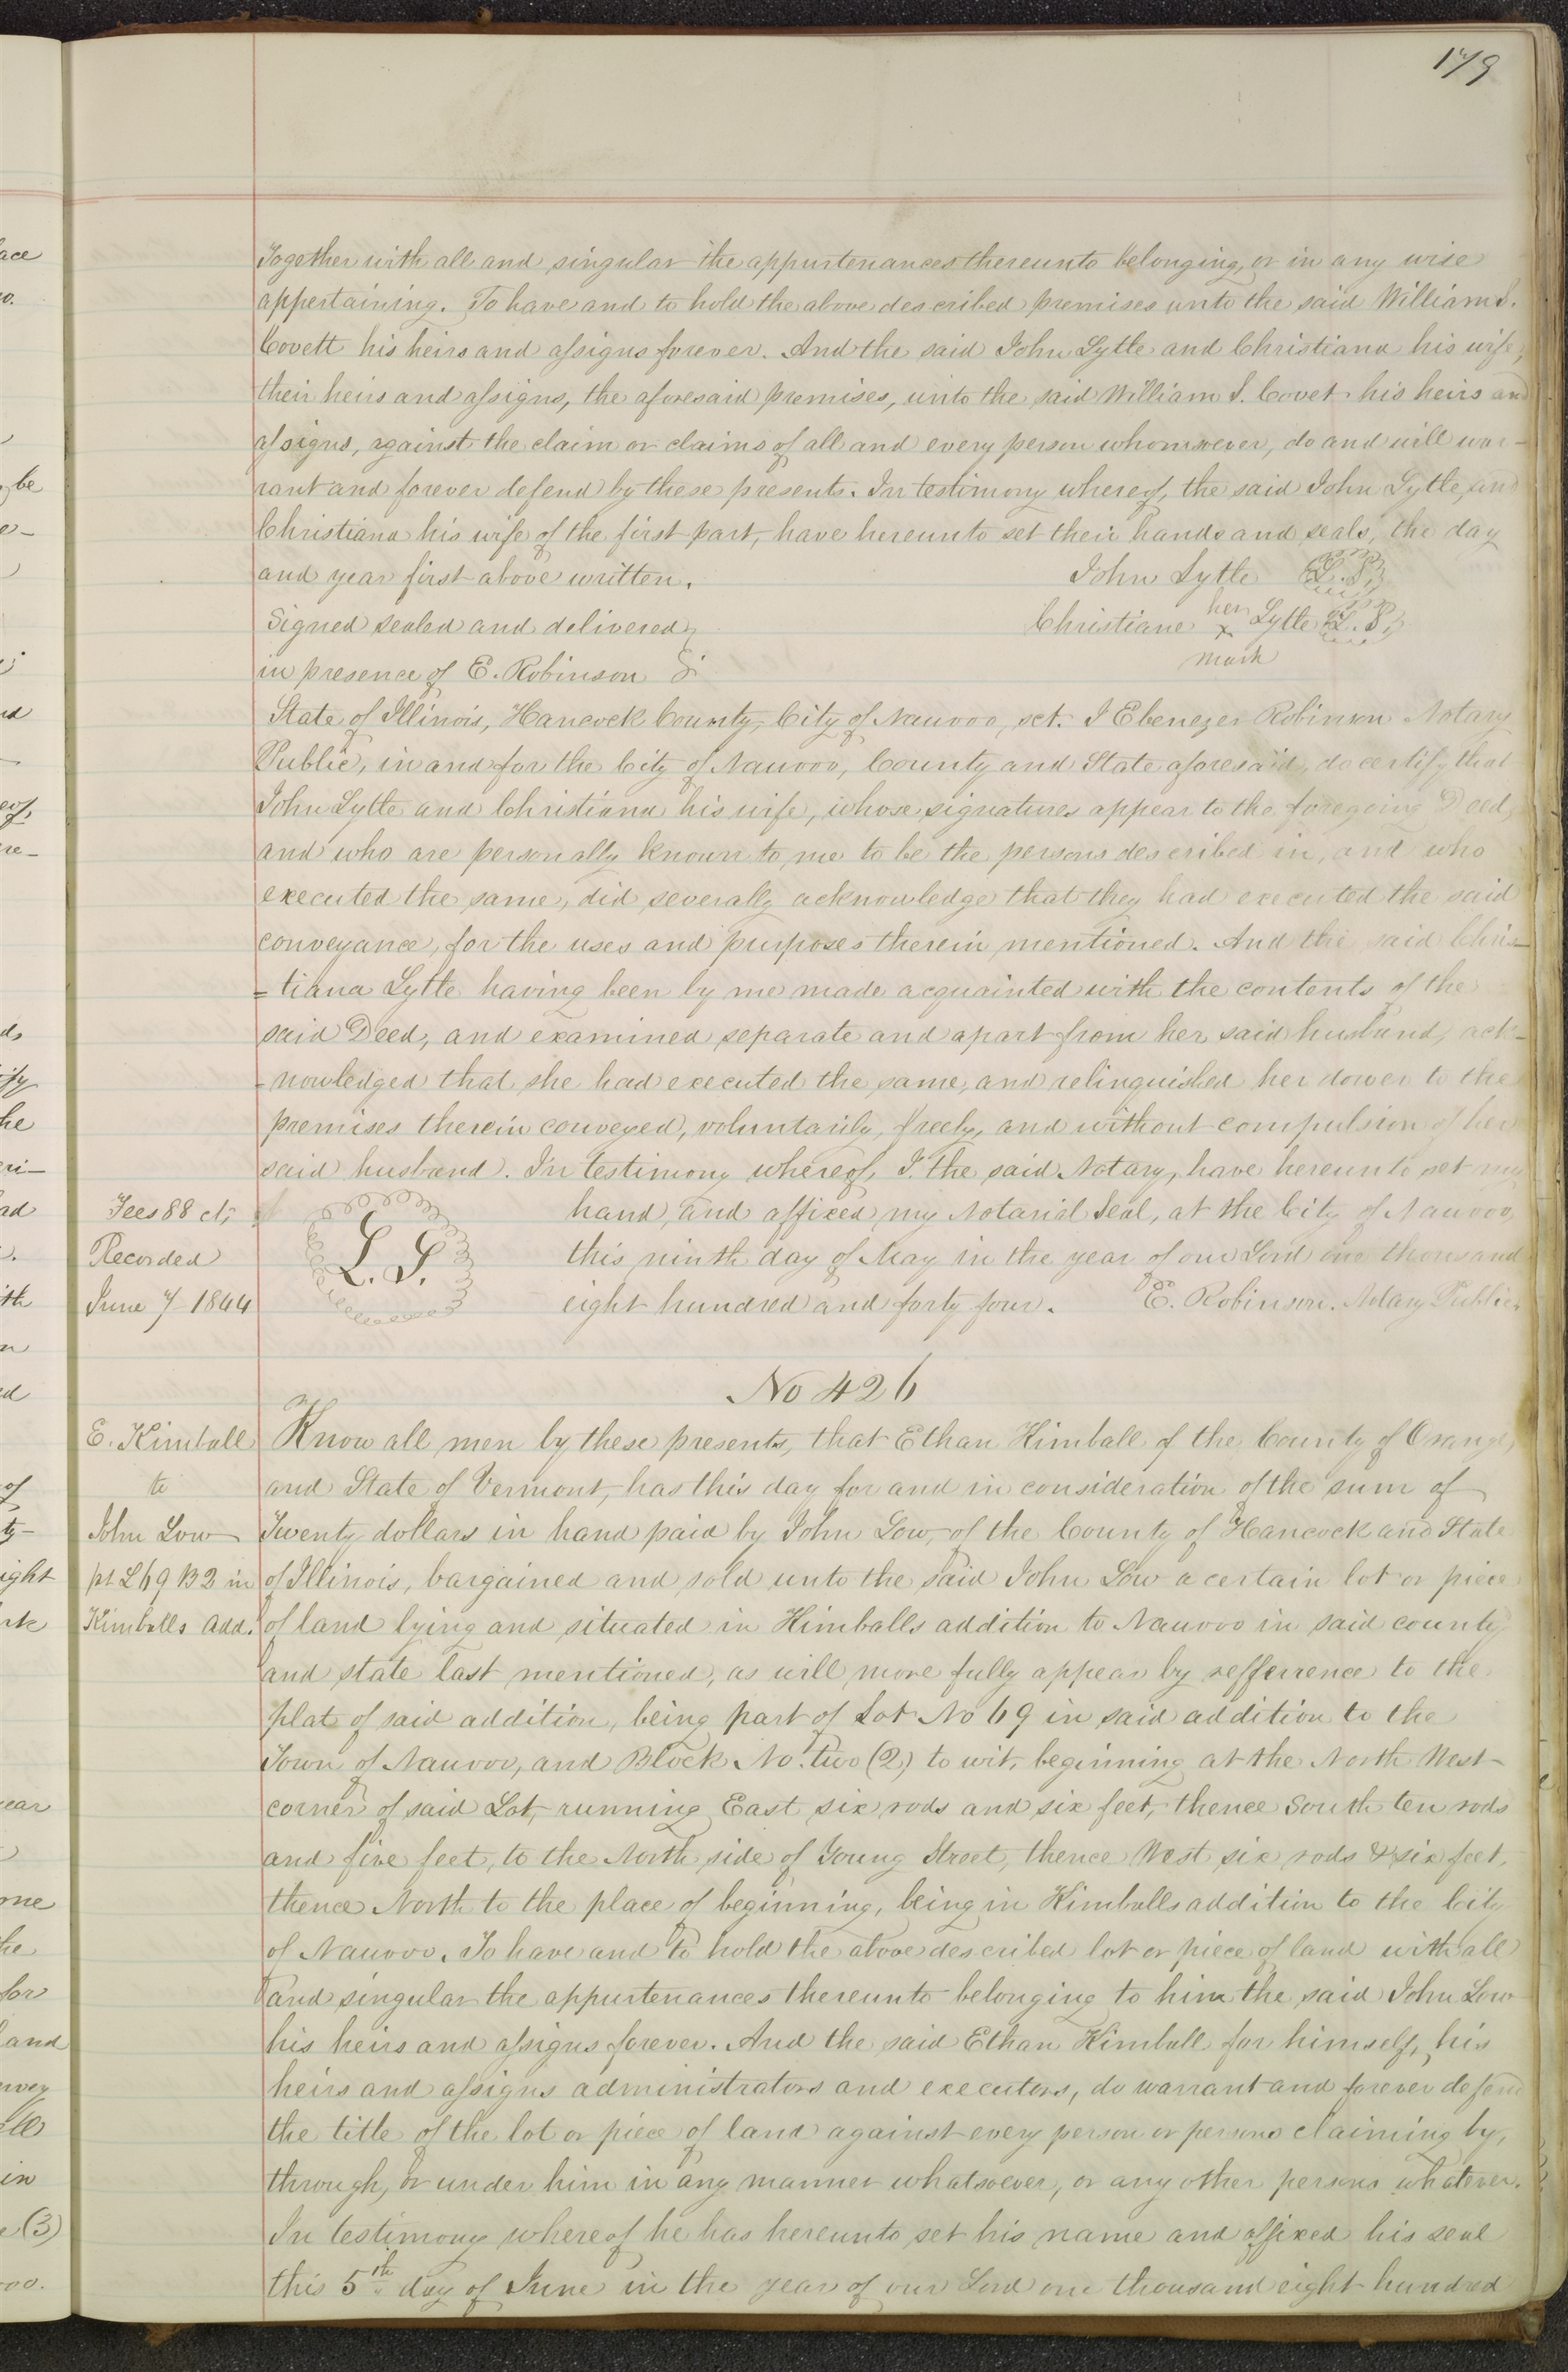 179
Together with all and singular the appurtenances thereunto belonging, or in any wise
appertaining. To have and to hold the above described premises unto the said William S.
Covett his heirs and assigns forever. And the said John Lytle and Christiana his wife,
their heirs and assigns, the aforesaid premises, unto the said William S. Covet his heirs and
assigns, against the claim or claims of all and every person whomsoever, do and will war-
rant and forever defend by these presents. In testimony whereof, the said John Lytle, and
Christiana his wife of the first part, have hereunto set their hands and seals, the day
and year first above written. John Lytle L.S.
Signed sealed and delivered Christiane her x mark Lytle L.S.
in presence of E. Robinson
State of Illinois, Hancock County, City of Nauvoo, sct. I Ebenezer Robinson Notary
Public, in and for the City of Nauvoo, County and State aforesaid, do certify that
John Lytle and Christiana his wife, whose signatures appear to the foregoing Deed,
and who are personally known to me to be the persons described in, and who
executed the same, did severally acknowledge that they had executed the said
conveyance, for the uses and purposes therein mentioned. And the said Chris-
=tiana Lytle having been by me made acquainted with the contents of the
said Deed, and examined separate and apart from her said husband, ack-
-nowledged that she had executed the same, and relinquished her dower to the
premises therein conveyed, voluntarily, freely, and without compulsion of her
said husband. In testimony whereof, I. the said Notary, have hereunto set my
Fees 88 cts L.S. hand, and affixed my Notarial Seal, at the City of Nauvoo,
Recorded this ninth day of May in the year of our Lord one thousand
June 7 1844 eight hundred and forty four. E. Robinson. Notary Public.
No 426
E. Kimball Know all men by these presents, that Ethan Kimball of the County of Orange,
to and State of Vermont, has this day for and in consideration of the sum of
John Low Twenty dollars in hand paid by John Low, of the County of Hancock and State
pt L 69 B 2 in of Illinois, bargained and sold unto the said John Low a certain lot or piece
Kimballs add. of land lying and situated in Kimballs addition to Nauvoo in said county
and state last mentioned, as will more fully appear by refferrence to the
plat of said addition, being part of Lot No 69 in said addition to the
Town of Nauvoo, and Block No. two (2) to wit, beginning at the North West
corner of said Lot, running East six rods and six feet, thence South ten rods
and five feet, to the North side of Young Street, thence West six rods & six feet,
thence North to the place of beginning, being in Kimballs addition to the City
of Nauvoo. To have and to hold the above described lot or piece of land with all
and singular the appurtenances thereunto belonging to him the said John Low
his heirs and assigns forever. And the said Ethan Kimball for himself, his
heirs and assigns administrators and executors, do warrant and forever defend
the title of the lot or piece of land against every person or persons claiming by,
through, or under him in any manner whatsoever, or any other persons whatever.
In testimony whereof he has hereunto set his name and affixed his seal
this 5th day of June in the year of our Lord one thousand eight hundred